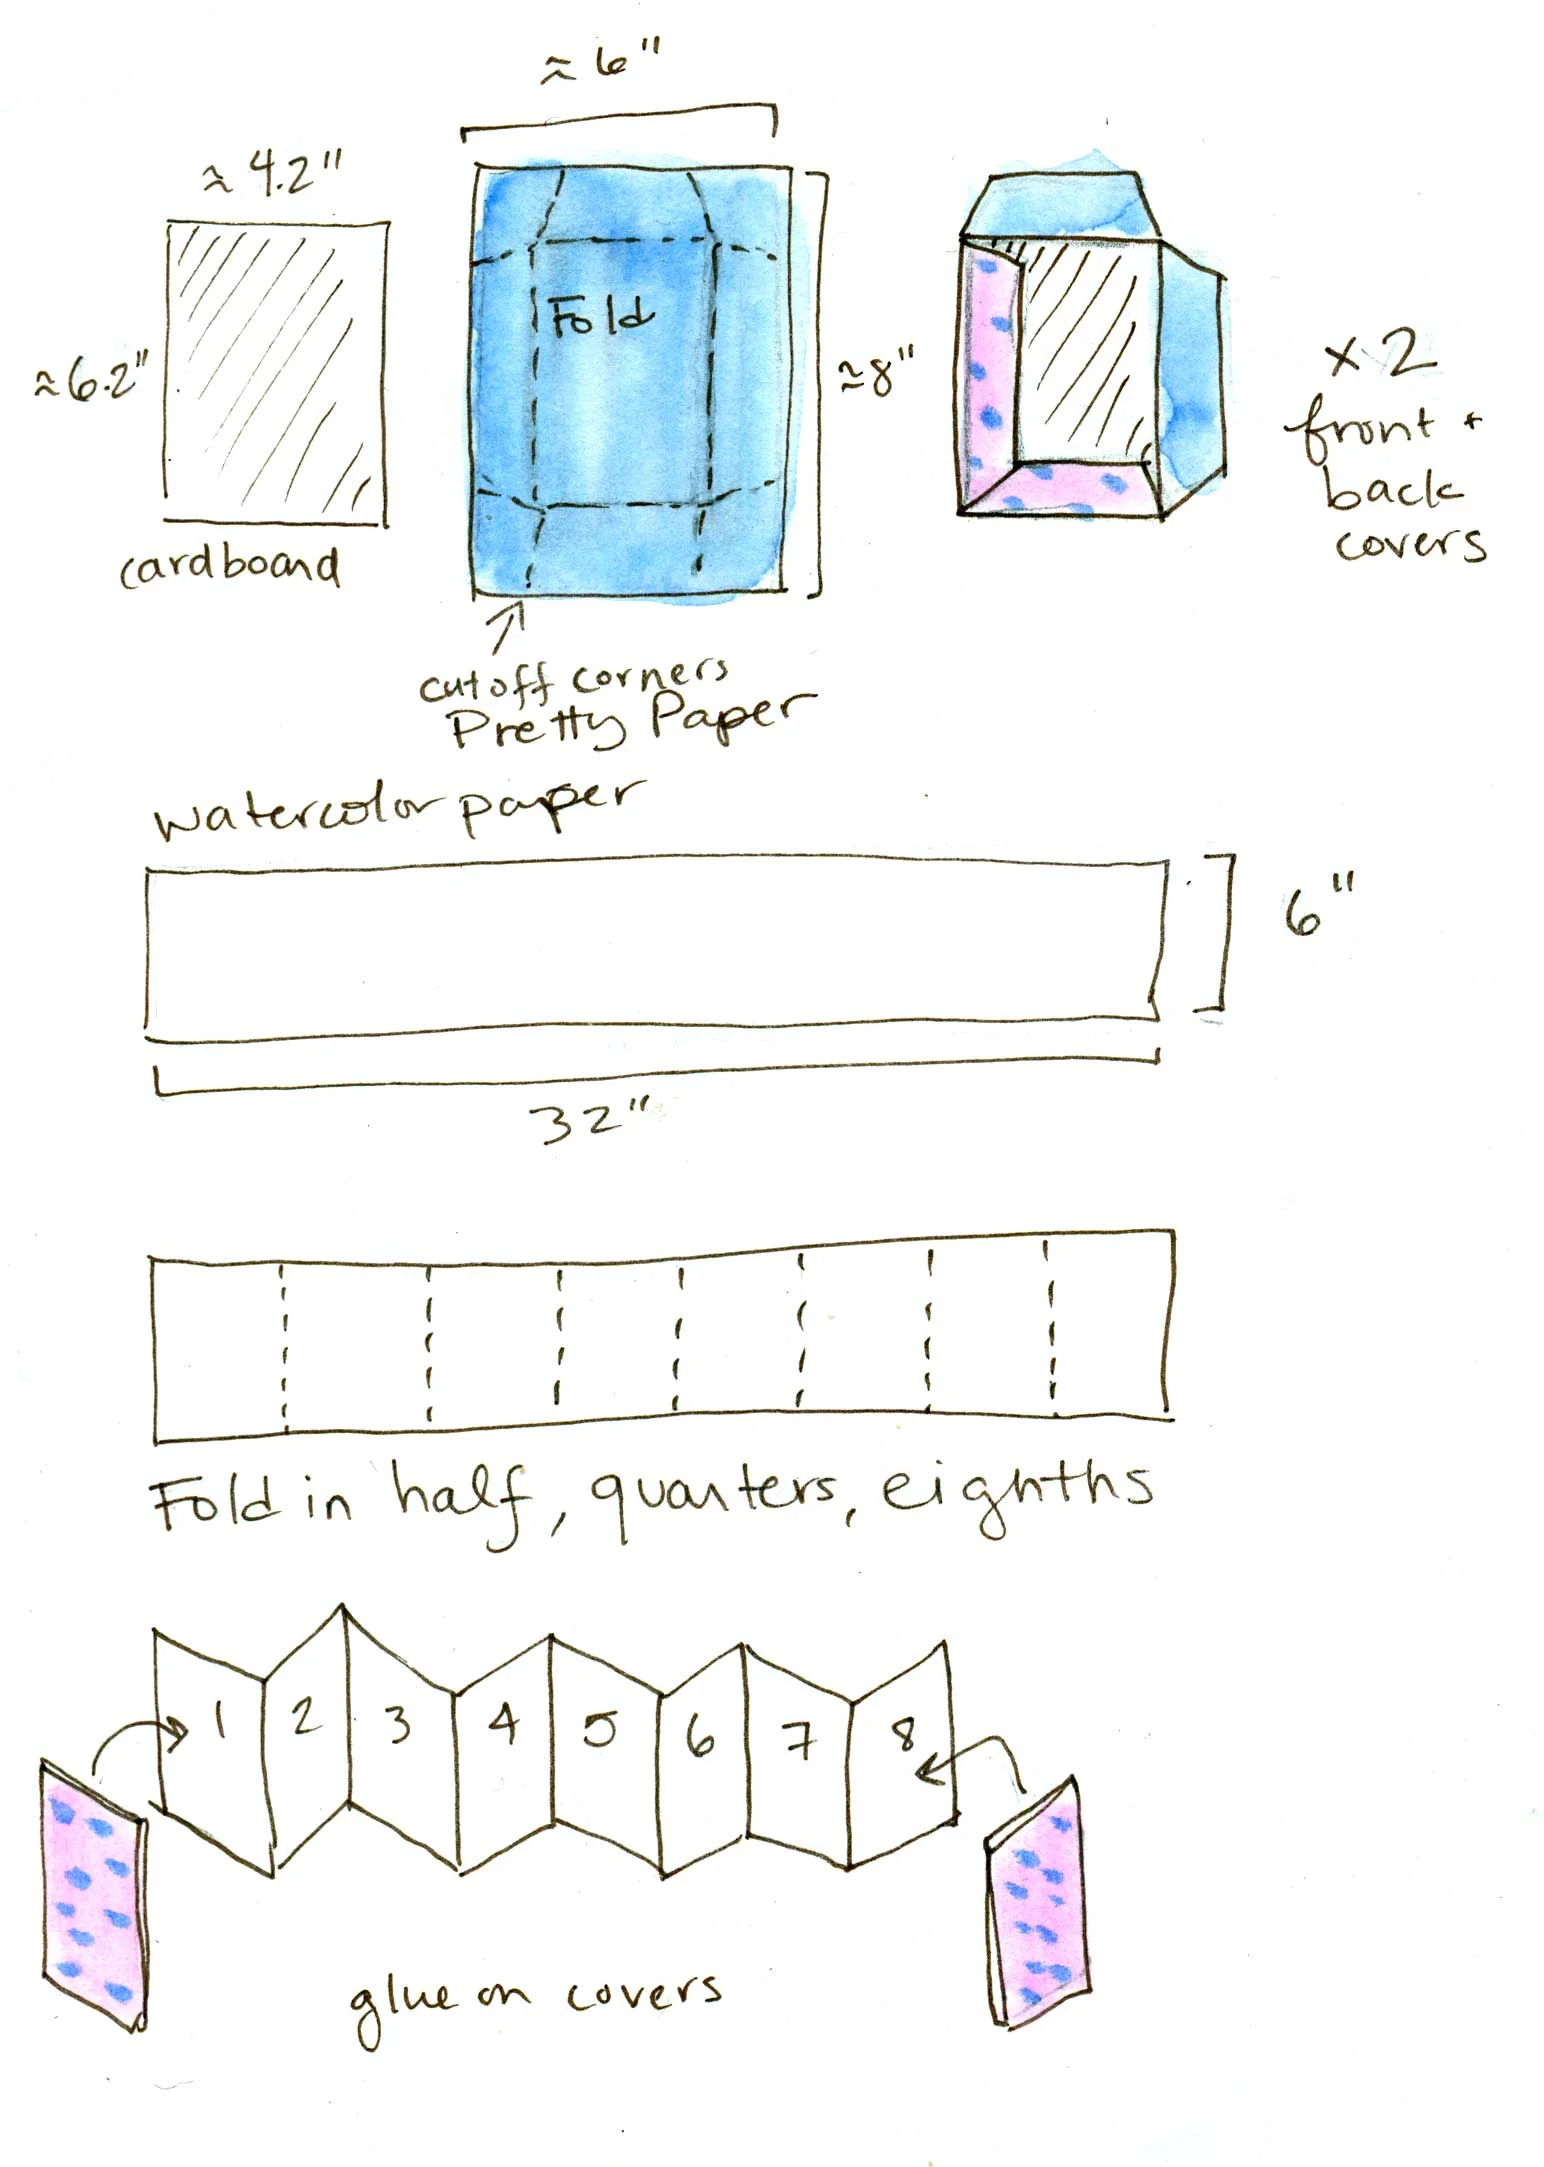 ≈ 6"
≈ 4.2"
≈6.2"
Fold
≈8"
x 2
front +
back
covers
cardboard
cutoff corners
Pretty Paper
watercolor paper
6"
32"
Fold in half, quarters, eighths
1 2 3 4 5 6 7 8
glue on covers